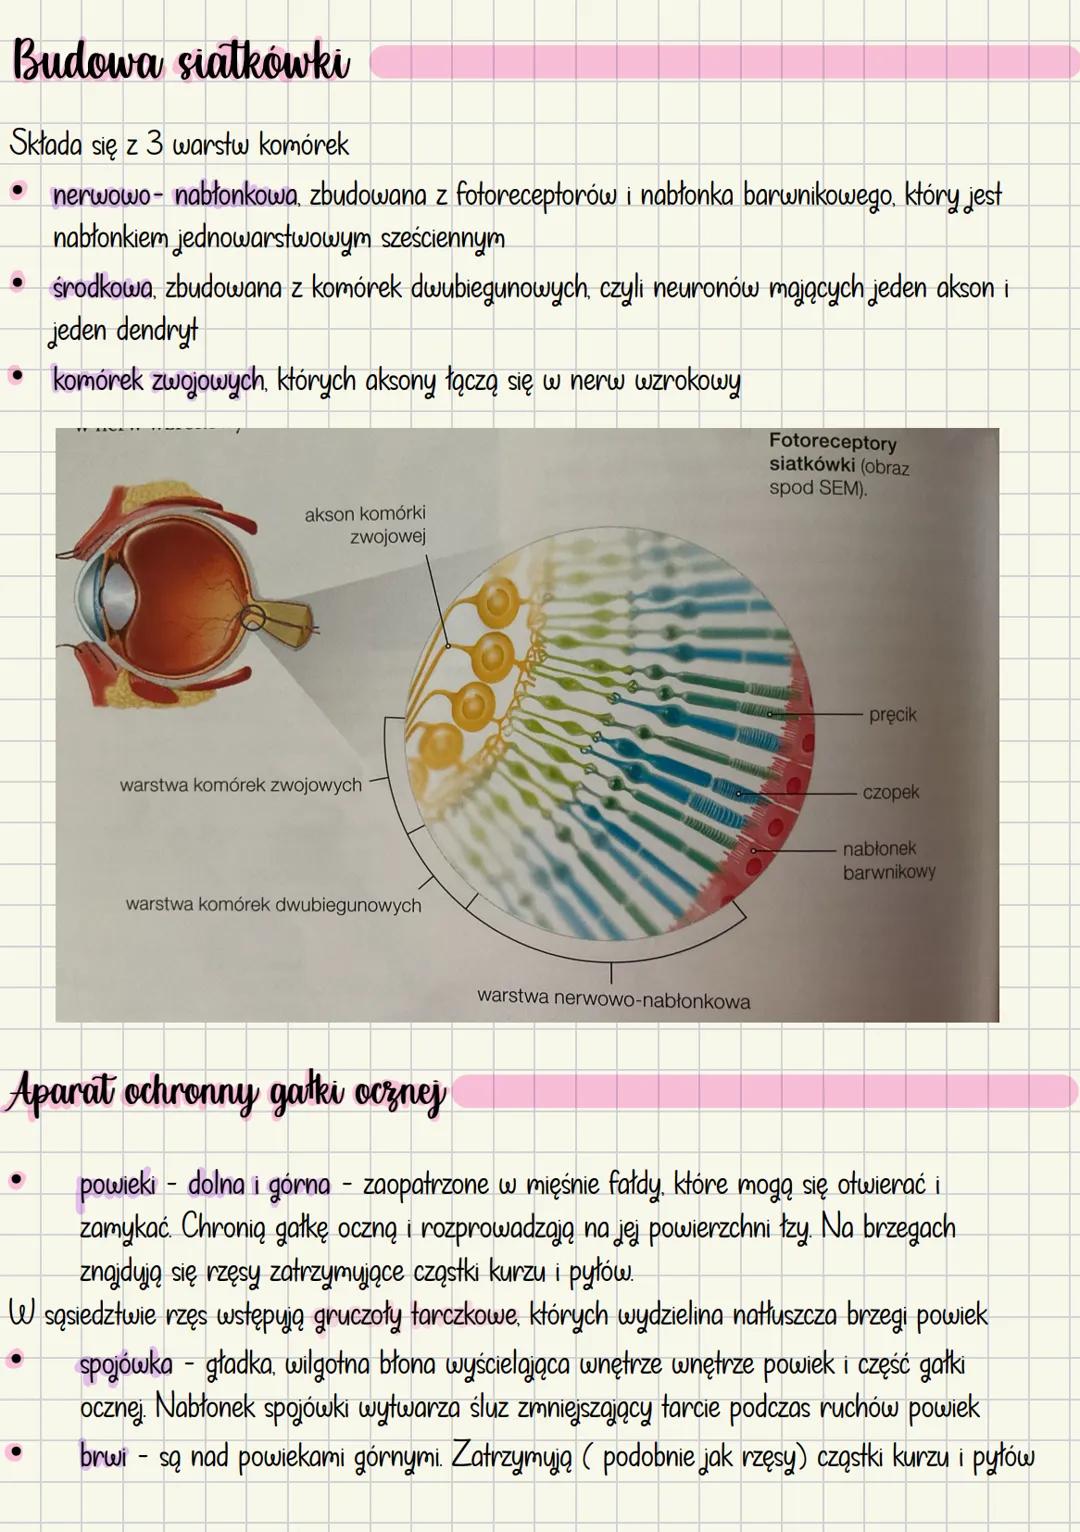 Budowa siatkówki
Składa się z 3 warstw komórek
• nerwowo- nabłonkowa, zbudowana z fotoreceptorów i nabłonka barwnikowego, który jest
nabłonkiem jednowarstwowym sześciennym
• środkowa, zbudowana z komórek dwubiegunowych, czyli neuronów mających jeden akson i
jeden dendryt
• komórek zwojowych, których aksony łączą się w nerw wzrokowy
Fotoreceptory
siatkówki (obraz
spod SEM).
akson komórki
zwojowej
pręcik
warstwa komórek zwojowych
czopek
nabłonek
barwnikowy
warstwa komórek dwubiegunowych
warstwa nerwowo-nabłonkowa
Aparat ochronny gałki ocznej
• powieki - dolna i górna - zaopatrzone w mięśnie fałdy, które mogą się otwierać i
zamykać. Chronią gałkę oczną i rozprowadzają na jej powierzchni łzy. Na brzegach
znajdują się rzęsy zatrzymujące cząstki kurzu i pyłów.
W sąsiedztwie rzęs wstępują gruczoły tarczkowe, których wydzielina natłuszcza brzegi powiek
• spojówka - gładka, wilgotna błona wyścielająca wnętrze wnętrze powiek i część gałki
ocznej. Nabłonek spojówki wytwarza śluz zmniejszający tarcie podczas ruchów powiek
• brwi - są nad powiekami górnymi. Zatrzymują ( podobnie jak rzęsy) cząstki kurzu i pyłów